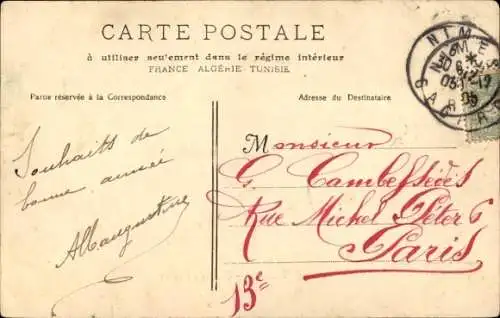 CARTE POSTALE
à utiliser seulement dans le régime intérieur
FRANCE ALGÉRIE-TUNISIE
Partie réservée à la Correspondance
Adresse du Destinataire
NIMES
GARE
05
Souhaits de
bonne année
Monsieur
G. Cambessédès
Rue Michel Peter 6
Paris
13e